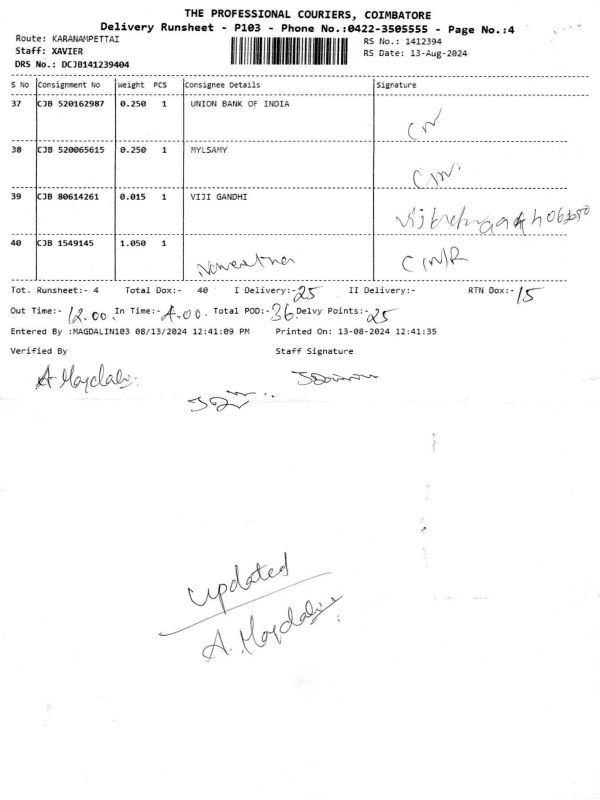 THE PROFESSIONAL COURIERS, COIMBATORE
Delivery Runsheet - P103 - Phone No.:0422-3505555 - Page No.:4
Route: KARANAMPETTAI RS No.: 1412394
Staff: XAVIER RS Date: 13-Aug-2024
DRS No.: DCJB141239404
S No Consignment No Weight PCS Consignee Details Signature
37 CJB 520162987 0.250 1 UNION BANK OF INDIA
38 CJB 520065615 0.250 1 MYLSAMY
39 CJB 80614261 0.015 1 VIJI GANDHI
40 CJB 1549145 1.050 1
Tot. Runsheet:- 4 Total Dox:- 40 I Delivery:-25 II Delivery:- RTN Dox:-15
Out Time:-12.00. In Time:-4.00. Total POD:-36 Delvy Points:-25
Entered By :MAGDALIN103 08/13/2024 12:41:09 PM Printed On: 13-08-2024 12:41:35
Verified By Staff Signature
updated